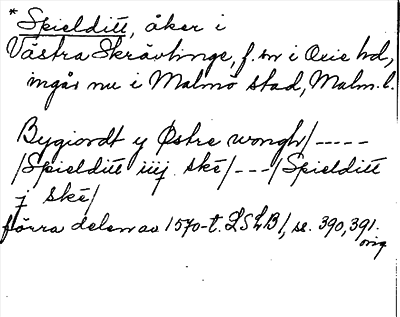 * Spielditt, åker i
Västra Skrävlinge, f. sn i Oxie hd,
ingår nu i Malmö stad, Malm. l.
Bygiordt y Østre wongh/-----
/Spielditt iiij ske/---/Spielditt
j ske/
förra delen av 1570-t. LSLB/, se. 390, 391.
orig